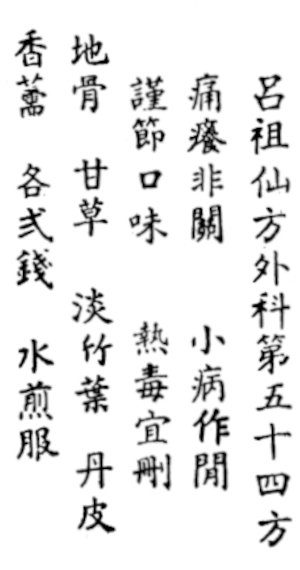 呂祖仙方外科第五十四方
痛癢非關 小病作閒
謹節口味 熱毒宜刪
地骨 甘草 淡竹葉 丹皮
香薷 各弍錢 水煎服